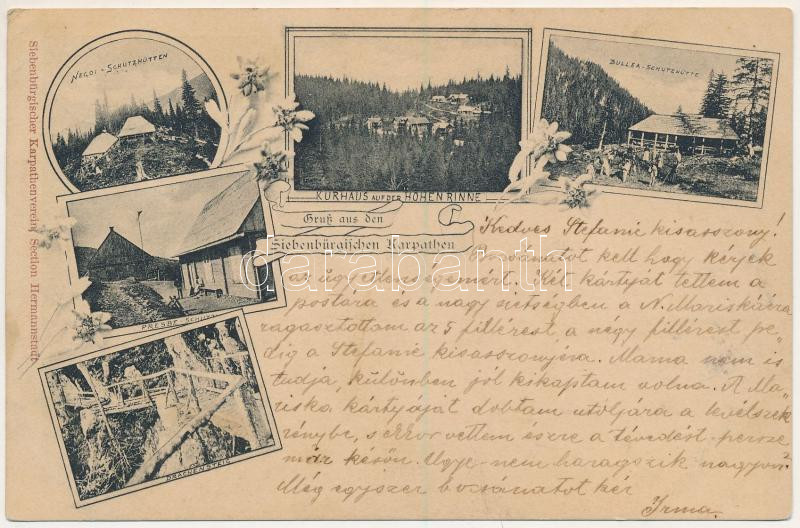 Siebenbürgischer Karpathenverein, Section Hermannstadt.
NEGOI-SCHUTZHÜTTEN
KURHAUS AUF DER HOHEN RINNE
BULLEA-SCHUTZHÜTTE
PRESBE-SCHUTZ
DRACHENSTEIG
Gruß aus den
Siebenbürgischen Karpathen
darabanth
Kedves Stefanie kisasszony!
Bocsánatot kell hogy kérjek
az ügyetlenségemért. Két kártyát tettem a
postára és a nagy sietségben a N. Mariskáéra
ragasztottam az 5 fillérest, a négy fillérest pe„
dig a Stefanie kisasszonyéra. Mama nem is
tudja, különben jól kikaptam volna. A Ma„
riska kártyáját dobtam utóljára a levélszek
rénybe, s akkor vettem észre a tévedést persze
már késön. Ugye nem haragszik nagyon?
Még egyszer bocsánatot kér
Irma.